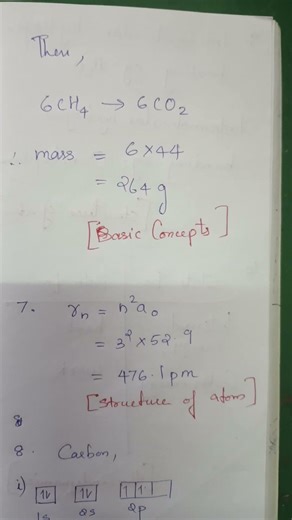 Then,
6CH₄ → 6CO₂
∴ mass = 6×44
= 264 g
[Basic Concepts]
7. rₙ = n²a₀
= 3² × 52.9
= 476.1 pm
[Structure of atom]
8
8. Carbon,
i) [1↿] [1↿] [1][1][ ]
1s 2s 2p